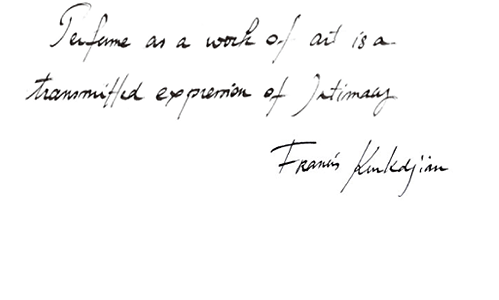 Perfume as a work of art is a
transmitted expression of Intimacy
Francis Kurkdjian